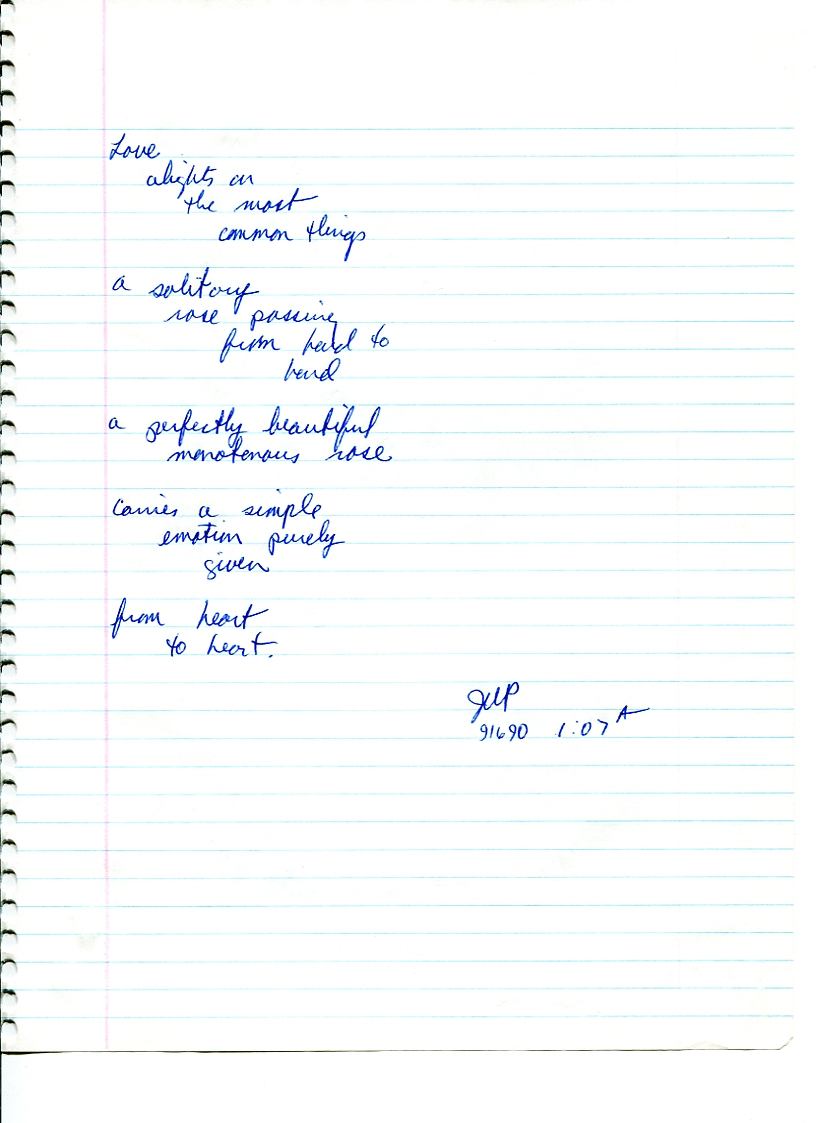 Love
alights on
the most
common things
a solitary
rose passing
from hand to
hand
a perfectly beautiful
monotonous rose
carries a simple
emotion purely
given
from heart
to heart.
91690 1:07 A